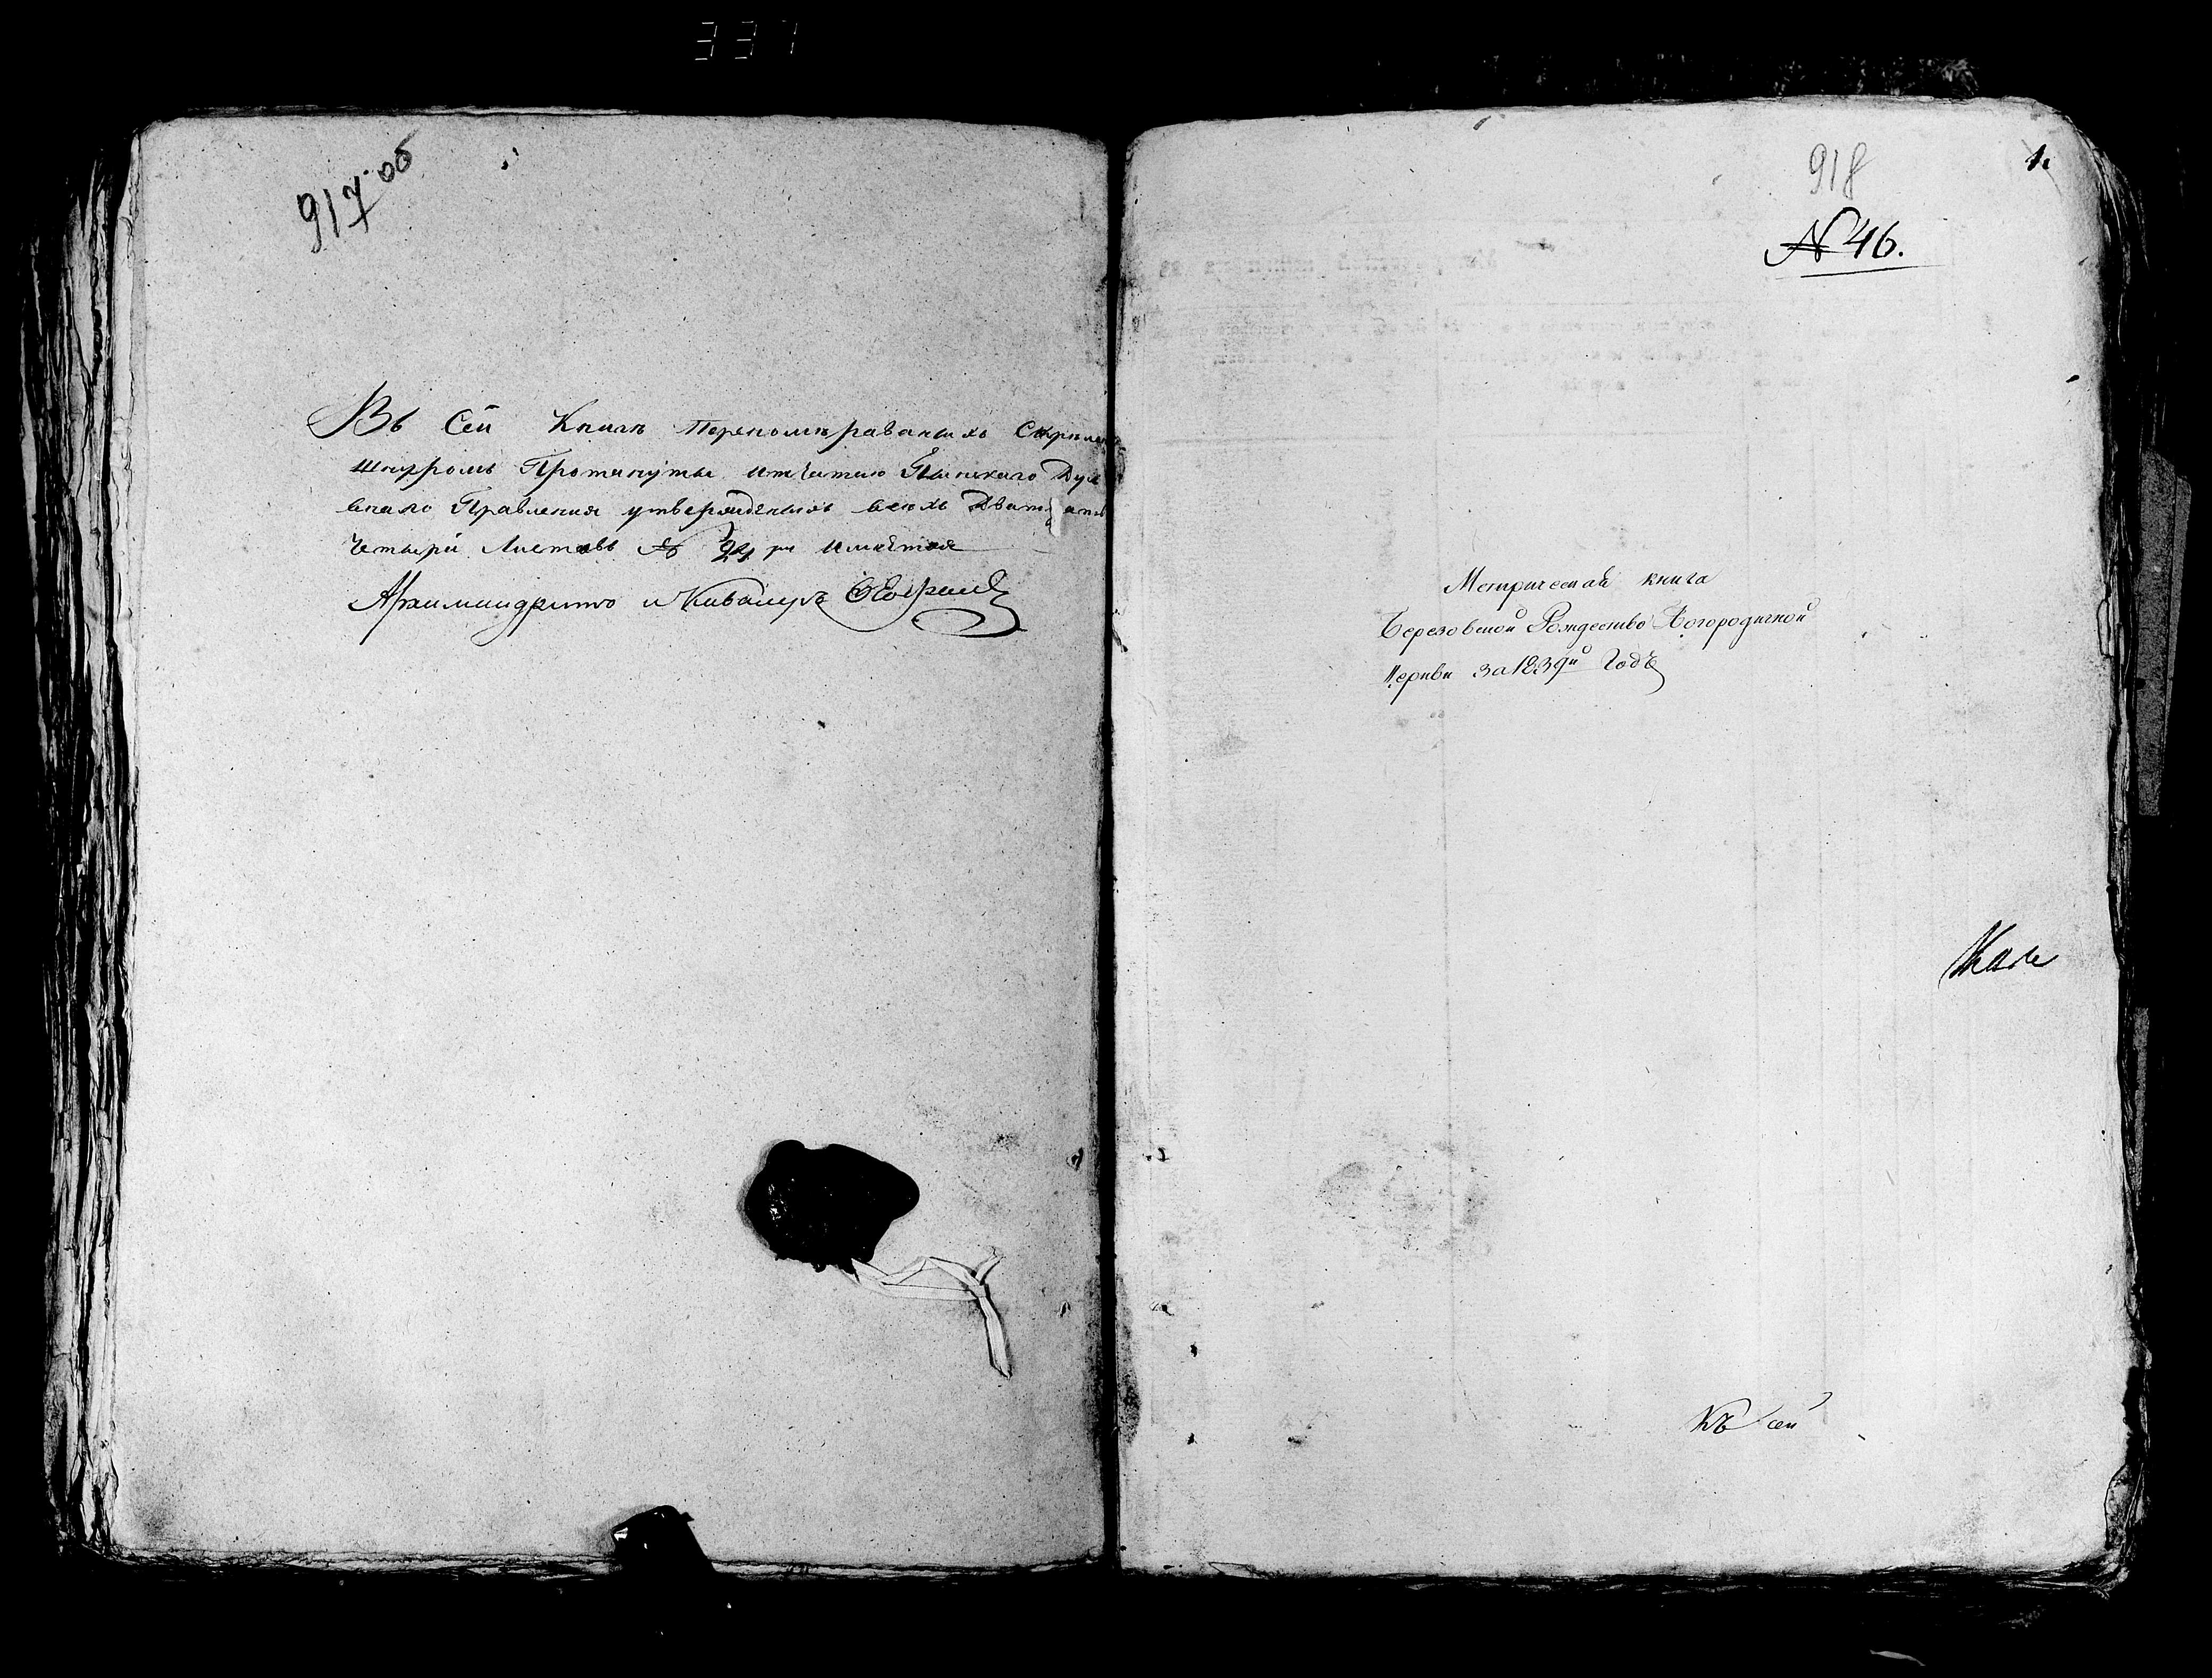 337
917 об
Въ Сей Книгѣ Перенумѣраваныхъ Скрѣплен
Шнуромъ Протянуты ипечатью Пинскаго Дух
внаго Правления утвержденыхъ всехъ Двативать
Четыри Листовъ № 24 имеѣтся
Архимандритъ и Кавалеръ
918
1.
№ 46.
Метрическая книга
Березовской Рождество Богородичной
Церкви за 1839й Годъ
Къ сей